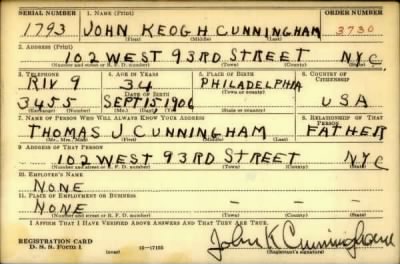 SERIAL NUMBER 1. NAME (Print) ORDER NUMBER
1793 JOHN KEOGH CUNNINGHAM 3730
(First) (Middle) (Last)
2. ADDRESS (Print)
102 WEST 93RD STREET N.Y.C.
(Number and street or R. F. D. number) (Town) (County) (State)
3. TELEPHONE 4. AGE IN YEARS 5. PLACE OF BIRTH 6. COUNTRY OF CITIZENSHIP
RIV 9 34 PHILADELPHIA
DATE OF BIRTH (Town or county)
3455 SEPT 15 1906 USA
(Mo.) (Day) (Yr.) (State or country)
7. NAME OF PERSON WHO WILL ALWAYS KNOW YOUR ADDRESS 8. RELATIONSHIP OF THAT PERSON
THOMAS J CUNNINGHAM FATHER
(Mr., Mrs., Miss) (First) (Middle) (Last)
9. ADDRESS OF THAT PERSON
102 WEST 93RD STREET NYC
(Number and street or R. F. D. number) (Town) (County) (State)
10. EMPLOYER'S NAME
NONE
11. PLACE OF EMPLOYMENT OR BUSINESS
NONE
(Number and street or R. F. D. number) (Town) (County) (State)
I AFFIRM THAT I HAVE VERIFIED ABOVE ANSWERS AND THAT THEY ARE TRUE.
REGISTRATION CARD
D. S. S. Form 1 (over) 16—17105 John K Cunningham